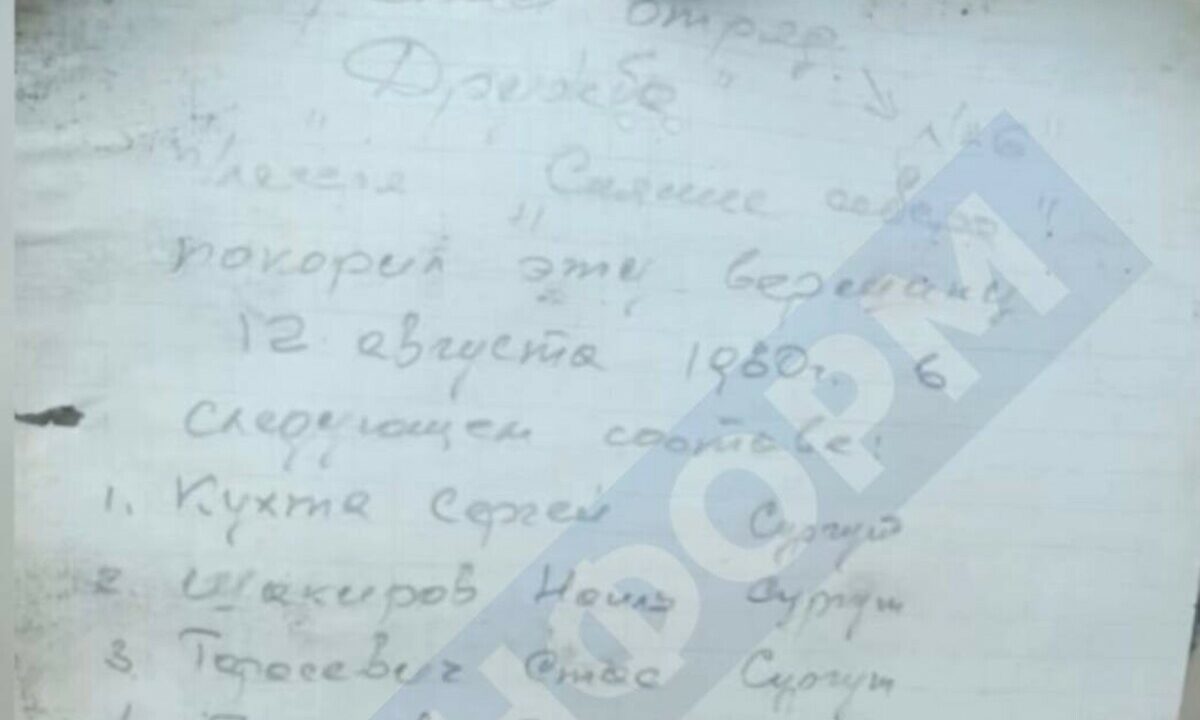 отряд
Дружба
"Сияние севера"
покорил эту вершину
12 августа 1980г. в
следующем составе:
1. Кухта Сергей Сургут
2 Шакиров Наиль Сургут
3 Тарасевич Стас Сургут
ФОРМ